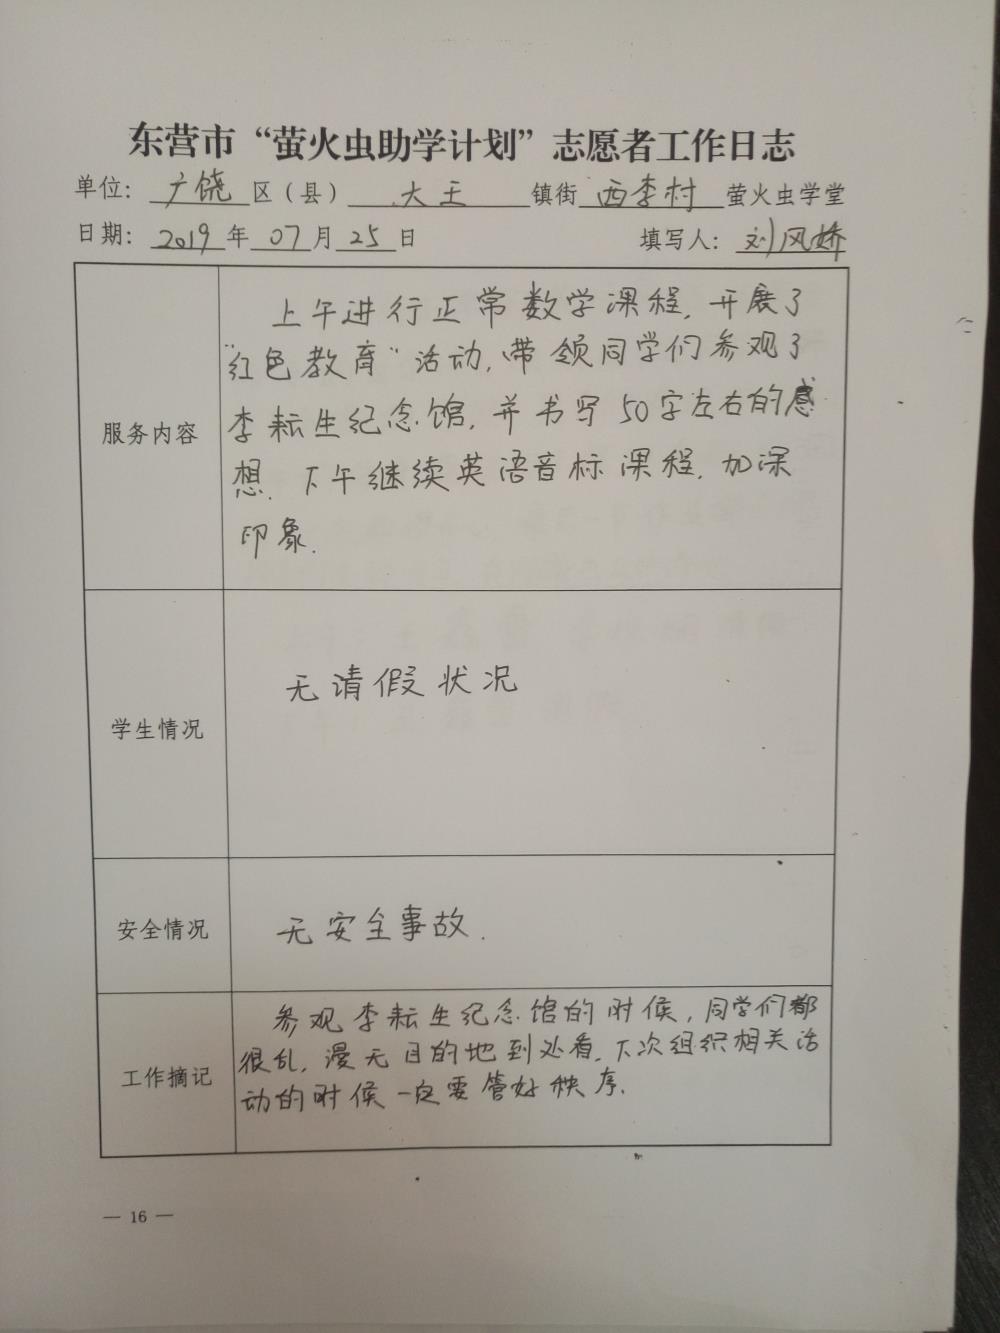 东营市“萤火虫助学计划”志愿者工作日志
单位：广饶区（县）大王镇街西李村萤火虫学堂
日期：2019年07月25日 填写人：刘风娇
服务内容
上午进行正常数学课程，开展了
“红色教育”活动，带领同学们参观了
李耘生纪念馆，并书写50字左右的感
想．下午继续英语音标课程，加深
印象．
学生情况
无请假状况
安全情况
无安全事故．
工作摘记
参观李耘生纪念馆的时候，同学们都
很乱，漫无目的地到处看，下次组织相关活
动的时候一定要管好秩序．
— 16 —